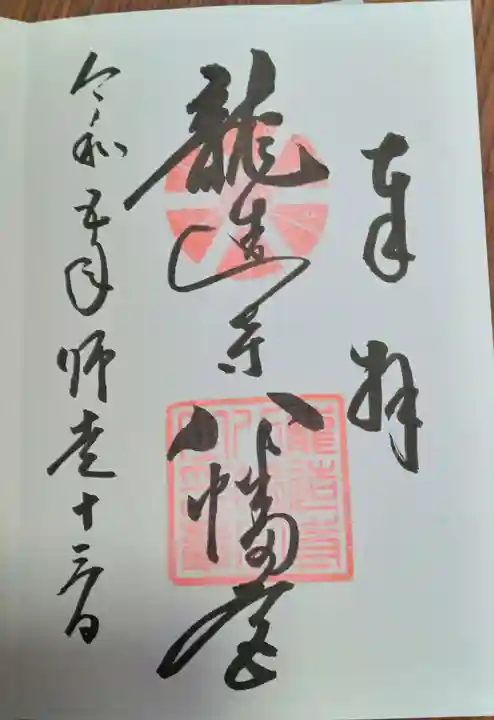 奉拝
龍造寺八幡宮
令和五年師走十三日